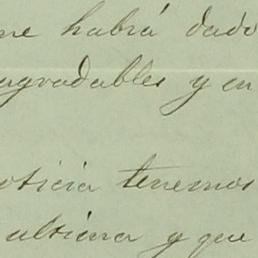 me habrá dado
agradables y en
noticia tenemos
ultima y que